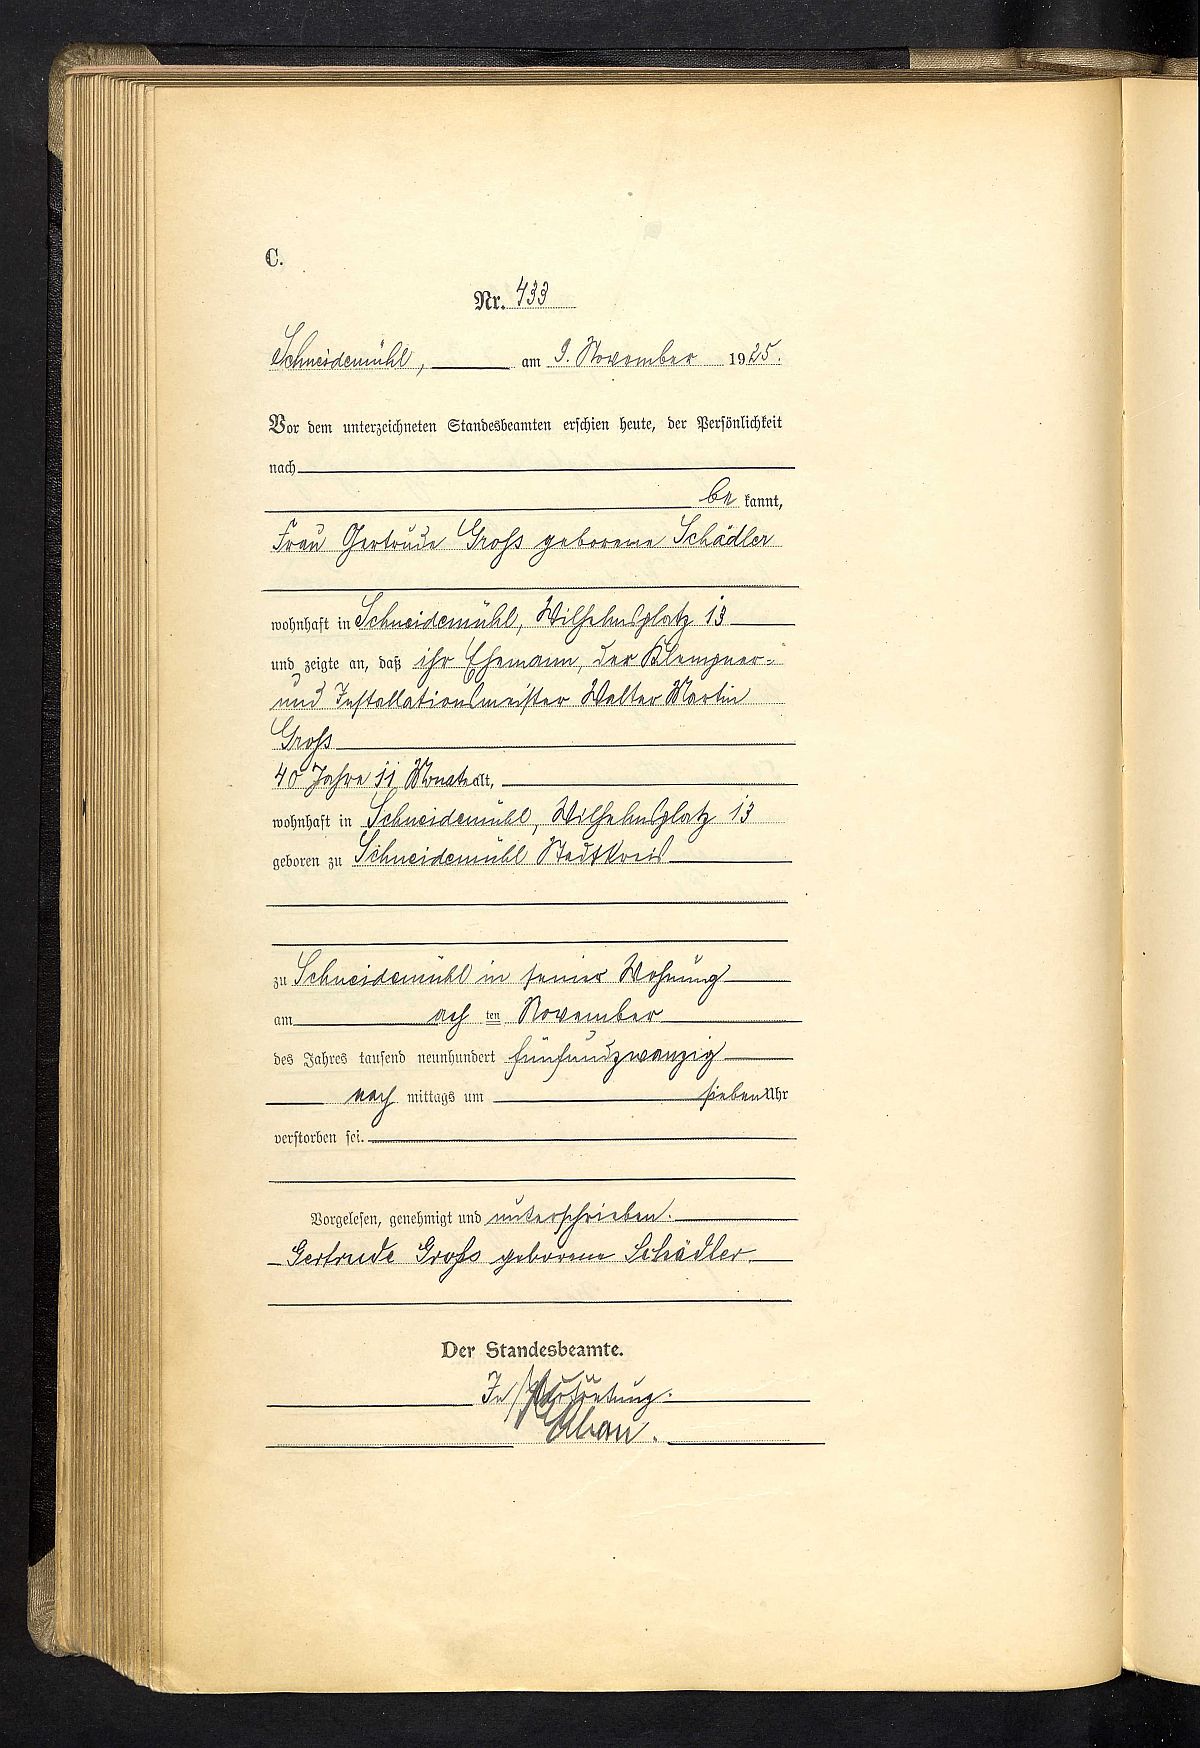 C.
Nr. 433
Schneidemühl, am 9. November 1925.
Vor dem unterzeichneten Standesbeamten erschien heute, der Persönlichkeit
nach
be kannt,
Frau Gertrude Groß geborene Schädler
wohnhaft in Schneidemühl, Wilhelmsplatz 13
und zeigte an, daß ihr Ehemann, der Klempner-
und Installationsmeister Walter Martin
Groß
40 Jahre 11 Monate alt,
wohnhaft in Schneidemühl, Wilhelmsplatz 13
geboren zu Schneidemühl Stadtkreis
zu Schneidemühl in seiner Wohnung
am ach ten November
des Jahres tausend neunhundert fünfundzwanzig
nach mittags um sieben Uhr
verstorben sei.
Vorgelesen, genehmigt und unterschrieben.
Gertrude Groß geborene Schädler
Der Standesbeamte.
In Vertretung.